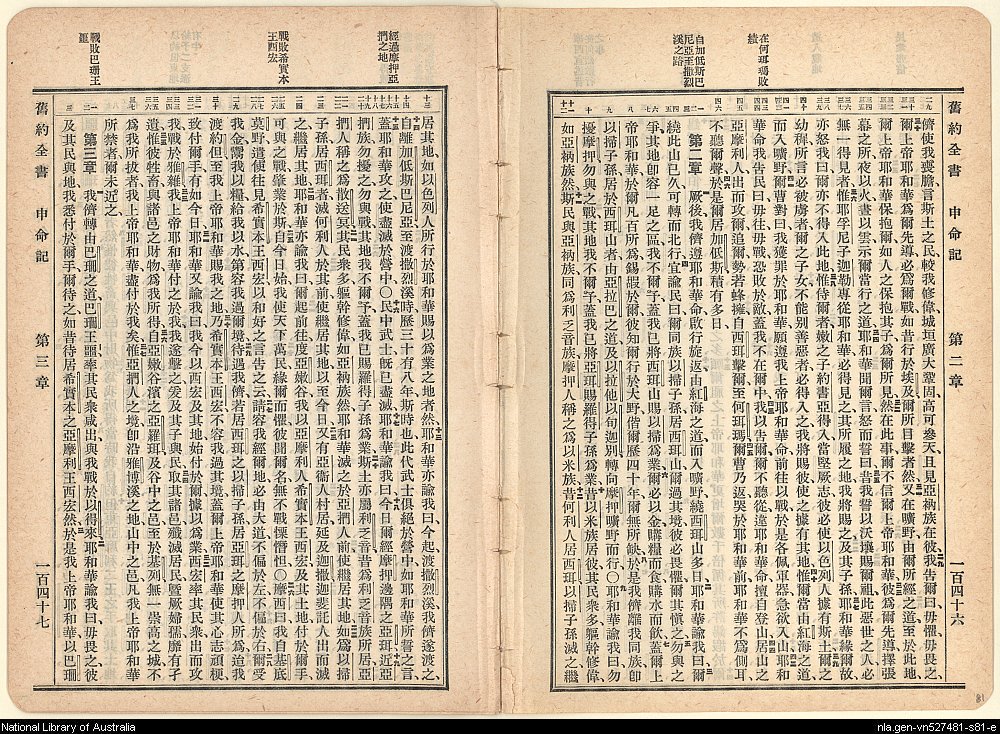 在何珥瑪敗
績
自加低斯巴
尼亞至撒烈
溪之路
舊約全書 申命記 第二章 一百四十六
儕使我喪膽言斯土之民較我修偉城垣廣大鞏固高可參天且見亞衲族在彼我告爾曰毋懼毋畏之
爾上帝耶和華爲爾先導必爲爾戰如昔行於埃及爾所目擊者然又在曠野由爾所經之道至於此地
爾上帝耶和華保抱爾如人之保抱其子爲爾所見然在此事爾不信爾上帝耶和華卽爾先導擇張
幕之所夜以火晝以雲示爾當行之道耶和華聞爾言怒而誓曰昔我誓以沃壤賜爾祖此惡世之人必
無一得見者惟耶孚尼子迦勒專從耶和華必得見之其所履之地我將賜之及其子孫耶和華緣爾故
亦怒我曰爾亦不得入此地惟侍爾者嫩之子約書亞得入當堅厥志彼必使以色列人據有斯土爾之
幼稚所言必被虜者爾之子女不能別善惡者必得入之我將賜彼使之據有其地惟爾當由紅海之道
而入曠野爾曹對曰我獲罪於耶和華願遵我上帝耶和華命前往以戰於是各佩軍器急欲入山耶和
華命我告民曰毋往毋戰恐敗於敵蓋我不在爾中我以告爾爾不聽從違耶和華命擅自登山居山之
亞摩利人出而攻爾追爾勢若蜂擁自西珥擊爾至何珥瑪爾曹乃返哭於耶和華前耶和華不爲側耳
不聽爾聲於是爾居加低斯積有多日
第二章 厥後我儕遵耶和華命啟行旋返由紅海之道而入曠野繞西珥山多日耶和華諭我曰爾
繞此山已久可轉而北行宜諭民曰爾同族以掃子孫居西珥山爾過其境彼必畏懼爾其愼之勿與之
爭其地卽容一足之區我不爾予蓋我已將西珥山賜以掃爲業爾必以金購糧而食購水而飮蓋爾上
帝耶和華於爾凡百所爲錫嘏於爾彼知爾行於大野偕爾歷四十年爾無所缺於是我儕離我同族卽
以掃子孫居於西珥山者由亞拉巴之道及以拉他以旬迦別轉向摩押曠野而行○耶和華諭我曰勿
擾摩押勿與之戰其地我不爾予蓋我已將亞珥賜羅得子孫爲業昔以米族居彼其民衆多軀幹修偉
如亞衲族然斯民與亞衲族同爲利乏音族摩押人稱之爲以米族昔何利人居西珥以掃子孫滅之繼
經過摩押亞
捫之地
戰敗希實本
王西宏
戰敗巴珊王
噩
居其地如以色列人所行於耶和華賜以爲業之地者然耶和華亦諭我曰今起渡撒烈溪我儕遂渡之
自離加低斯巴尼亞至渡撒烈溪時歷三十有八年斯時也此代武士俱絕於營中如耶和華所誓之言
蓋耶和華攻之使盡滅於營中○民中武士旣已盡滅耶和華諭我曰今日爾經摩押邊隅之亞珥近亞
捫族勿擾之勿與戰其地我不爾予蓋我已賜羅得子孫爲業斯土亦屬利乏音昔爲利乏音族所居亞
捫人稱之爲散送冥其民衆多軀幹修偉如亞衲族然耶和華滅之於亞捫人前使繼居其地如爲以掃
子孫居西珥者滅何利人於其前使繼居其地以至今日又有亞衞人村居延及迦撒迦斐託人出而滅
之繼居其地耶和華亦諭我曰爾起前往度亞嫩谷我以亞摩利人希實本王西宏及其土地付於爾手
可與之戰肇業於斯自今日始我使天下萬民緣爾而懼彼聞爾名無不戰慄惛怛○摩西曰我自基底
莫野遣使往見希實本王西宏以和好之言告之云請容我經爾地必由大道不偏於左不偏於右爾受
我金霱我以糧給我以水第容我過爾境待遇我儕若居西珥之以掃子孫居亞珥之摩押人所爲迨我
渡約但至我上帝耶和華賜我之地乃希實本王西宏不容我過其境蓋爾上帝耶和華使其心志頑梗
致付爾手有如今日耶和華又諭我曰我今以西宏及其地始付於爾據以爲業西宏率其民衆出而攻
我戰於雅雜我上帝耶和華付之於我我遂擊之爰及其子與民取其諸邑殲滅居民暨厥婦孺靡有孑
遺惟彼牲畜與諸邑之財物爲我所得自亞嫩谷濱之亞羅珥及谷中之邑至於基列無一崇高之城不
爲我所拔者我上帝耶和華盡付於我矣惟亞捫人之境卽沿雅博溪之地山中之邑凡我上帝耶和華
所禁者爾未近之
第三章 我儕轉由巴珊之道巴珊王噩率其民衆咸出與我戰於以得來耶和華諭我曰毋畏之彼
及其民與地我悉付於爾手爾待之如昔待居希實本之亞摩利王西宏然於是我上帝耶和華以巴珊
舊約全書 申命記 第三章 一百四十七
National Library of Australia
nla.gen-vn527481-s81-e